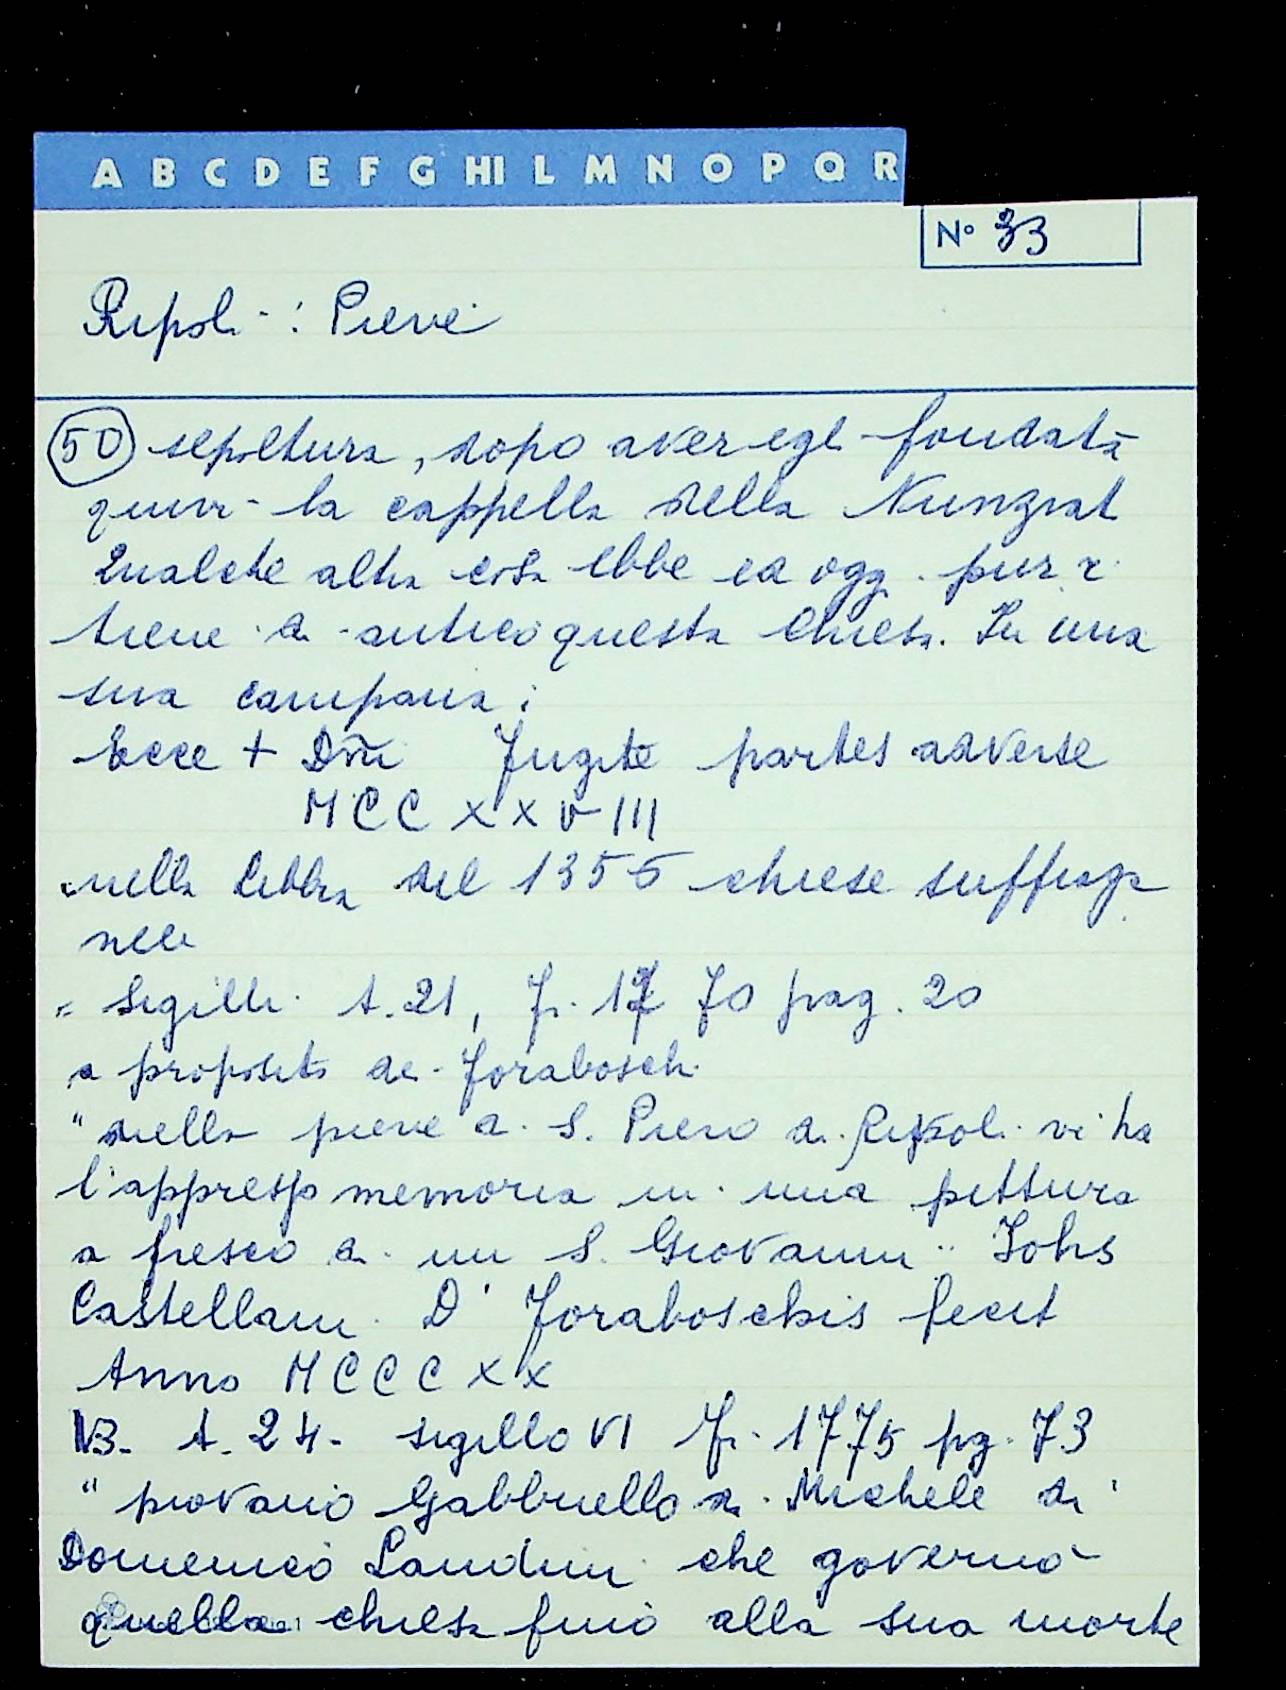 A B C D E F G HI L M N O P Q R
N° 33
Ripoli : Pieve
50 sepoltura, dopo aver egli fondata
quivi la cappella della Nunziat
Qualche altra cosa ebbe ed oggi pur ri
tiene di antico questa chiesa. In una
sua campana:
Ecce + Dñi Fugite partes adverse
MCCXXVIII
nella libbra del 1356 chiese suffraga
nee
" Sigilli t. 21, Fi. 17 70 pag. 20
a proposito dei Foraboschi
" nella pieve a S. Piero di Ripoli vi ha
l'appresso memoria in una pittura
a fresco di un S. Giovanni " Johs
Castellani D' Foraboschis fecit
Anno MCCCXX
t. 24. sigillo VI Fi. 1775 pg. 73
" piovano Gabbriello di Michele di
Domenico Landini che governò
quella chiesa fino alla sua morte